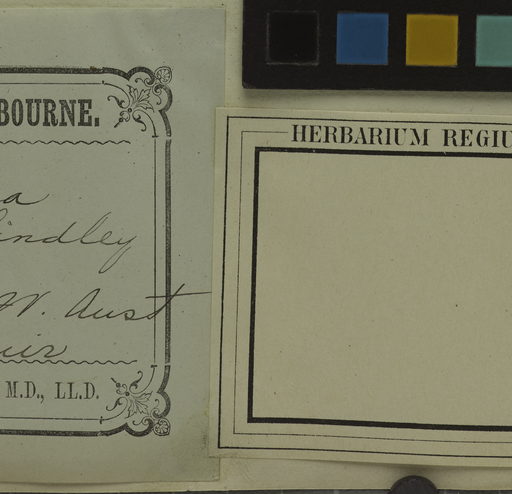 BOURNE.
a
Lindley
W. Aust
uir
M.D., LL.D.
HERBARIUM REGIU